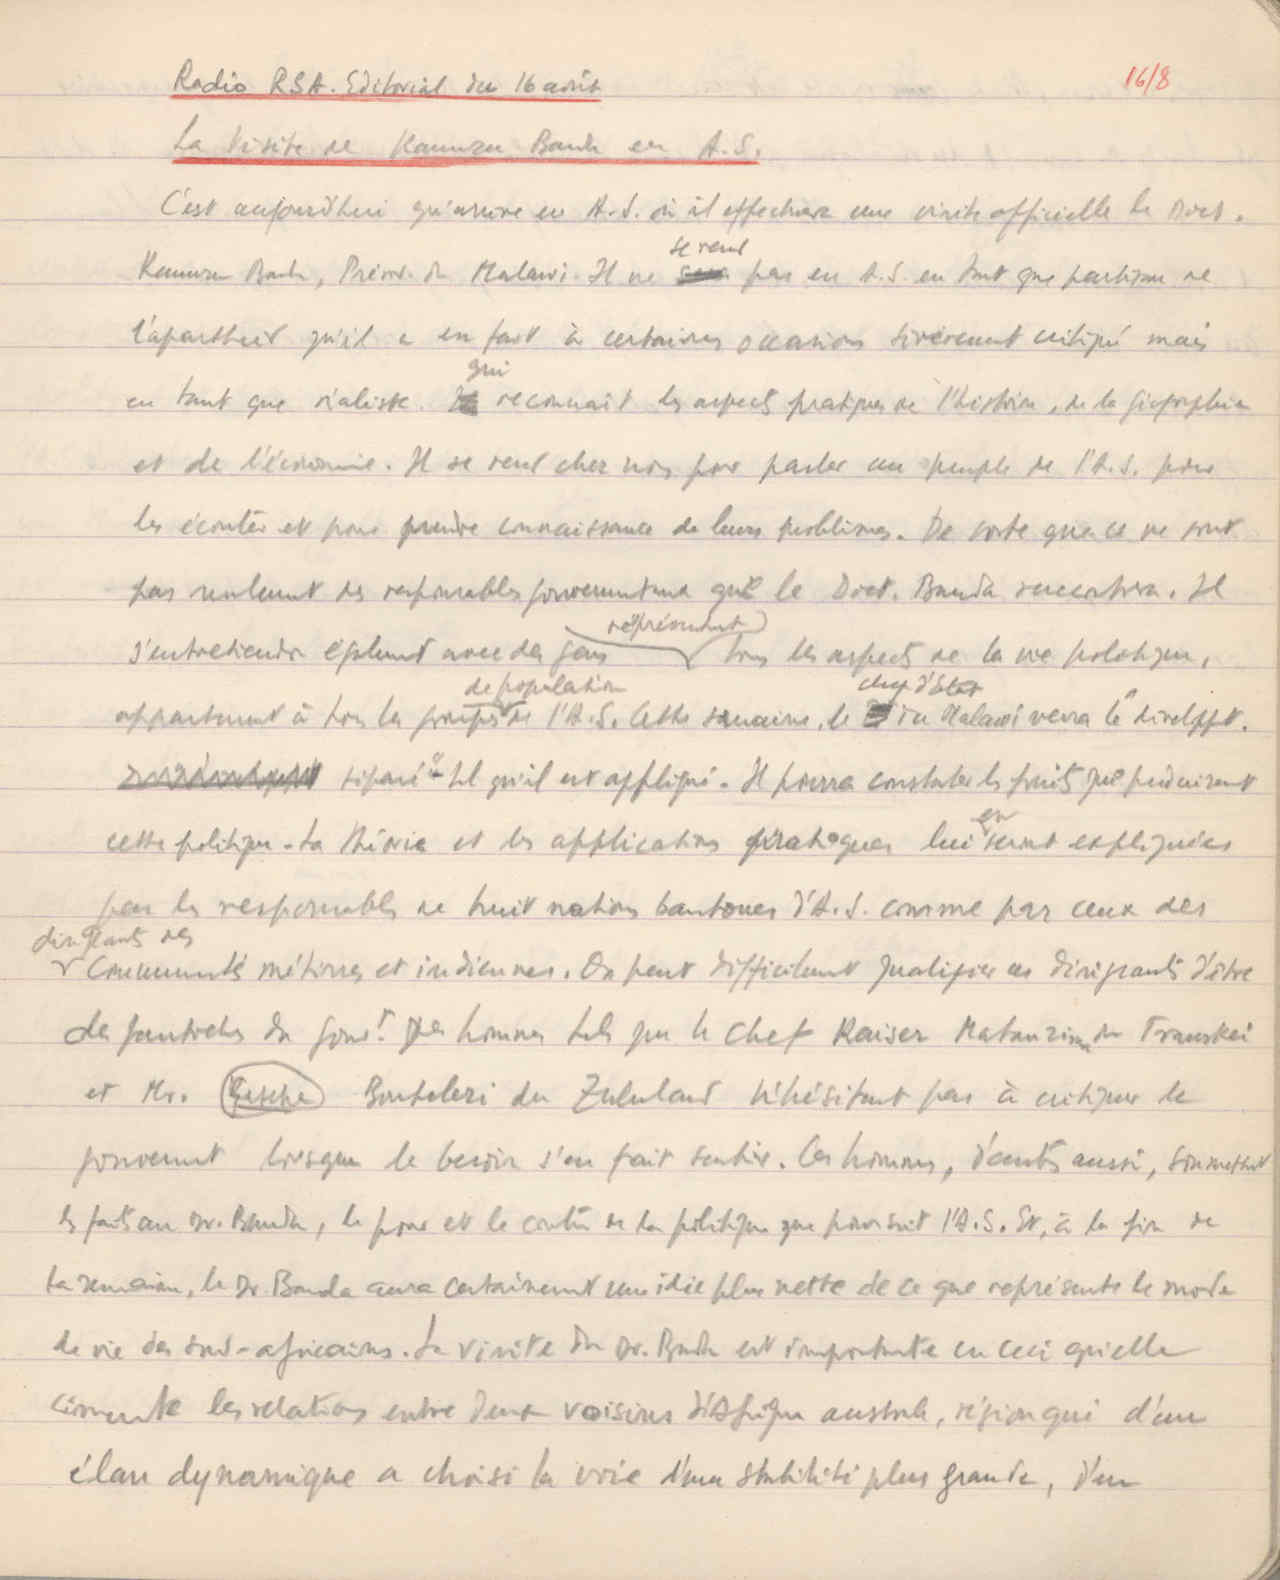 Radio RSA. Editorial du 16 août
16/8
La Visite de Kamuzu Banda en A.S.
C'est aujourd'hui qu'arrive en A.S. où il effectuera une visite officielle le Doct.
Kamuzu Banda, Présid. du Malawi. Il ne se rend pas en A.S. en tant que partisan de
l'apartheid qu'il a en fait à certaines occasions sévèrement critiqué mais
en tant que réaliste. qui reconnait les aspects pratiques de l'histoire, de la géographie
et de l'économie. Il se rend chez nous pour parler au peuple de l'A.S. pour
les écouter et pour prendre connaissance de leurs problèmes. De sorte que ce ne sont
pas seulement des responsables gouvernementaux que le Doct. Banda rencontrera. Il
s'entretiendra également avec des gens représentant tous les aspects de la vie politique,
appartenant à tous les groupes de population de l'A.S. Cette semaine, le chef d'Etat du Malawi verra le développt.
séparé tel qu'il est appliqué. Il pourra constater les fruits que produisent
cette politique. La théorie et les applications pratiques lui en seront expliquées
par les responsables de huit nations bantoues d'A.S. comme par ceux des
dirigeants des
Communautés métisses et indiennes. On peut difficilement qualifier ces dirigeants d'être
des fantoches du gouvt. Des hommes tels que le Chef Kaiser Matanzima du Transkei
et Mr. Boutelezi du Zululand n'hésitent pas à critiquer le
gouvernement lorsque le besoin s'en fait sentir. Ces hommes, d'autres aussi, soumettent
les faits au Dr. Banda, le pour et le contre de la politique que poursuit l'A.S. Et, à la fin de
la semaine, le Dr. Banda aura certainement une idée plus nette de ce que représente le mode
de vie des sud-africains. La visite du Dr. Banda est importante en ceci qu'elle
cimente les relations entre deux voisins d'Afrique australe, région qui d'un
élan dynamique a choisi la voie d'une stabilité plus grande, d'un